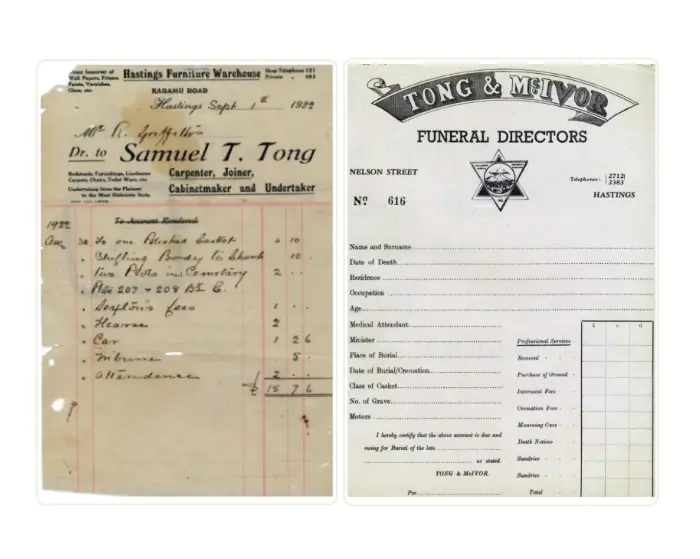 Direct Importer of
Wall Papers, Frieses
Paints, Varnishes,
Glass, etc.
Hastings Furniture Warehouse
Shop Telephone
Private
KARAMU ROAD
Hastings Sept 1st 1922
Mr R. Griffiths
Dr. to Samuel T. Tong
Bedsteads, Furnishings, Linoleums
Carpets, Chairs, Toilet Ware, etc.
Undertaking from the Plainest
to the Most Elaborate Style.
Carpenter, Joiner,
Cabinetmaker and Undertaker
To Account Rendered
1922
Aug 30 To one Polished Casket 6 10
" Shifting Body to Church 10 .
" Two Plots in Cemetery 2 . .
" Nos 207 + 208 Blk C.
" Sexton's fees 1 . .
" Hearse 2
" Car 1 2 6
" Tribune 5 .
" Attendance 2 . .
£ 15 7 6
TONG & McIVOR
FUNERAL DIRECTORS
NELSON STREET
Telephones: 2712
2383
HASTINGS
No 616
Name and Surname
Date of Death
Residence
Occupation
Age
Medical Attendant
Minister
Place of Burial
Date of Burial/Cremation
Class of Casket
No. of Grave
Motors
I hereby certify that the above account is due and
owing for Burial of the late
as stated.
TONG & McIVOR.
Per
£ s. d.
Professional Services
Removal
Purchase of Ground
Interment Fees
Cremation Fees
Mourning Cars
Death Notices
Sundries
Sundries
Total